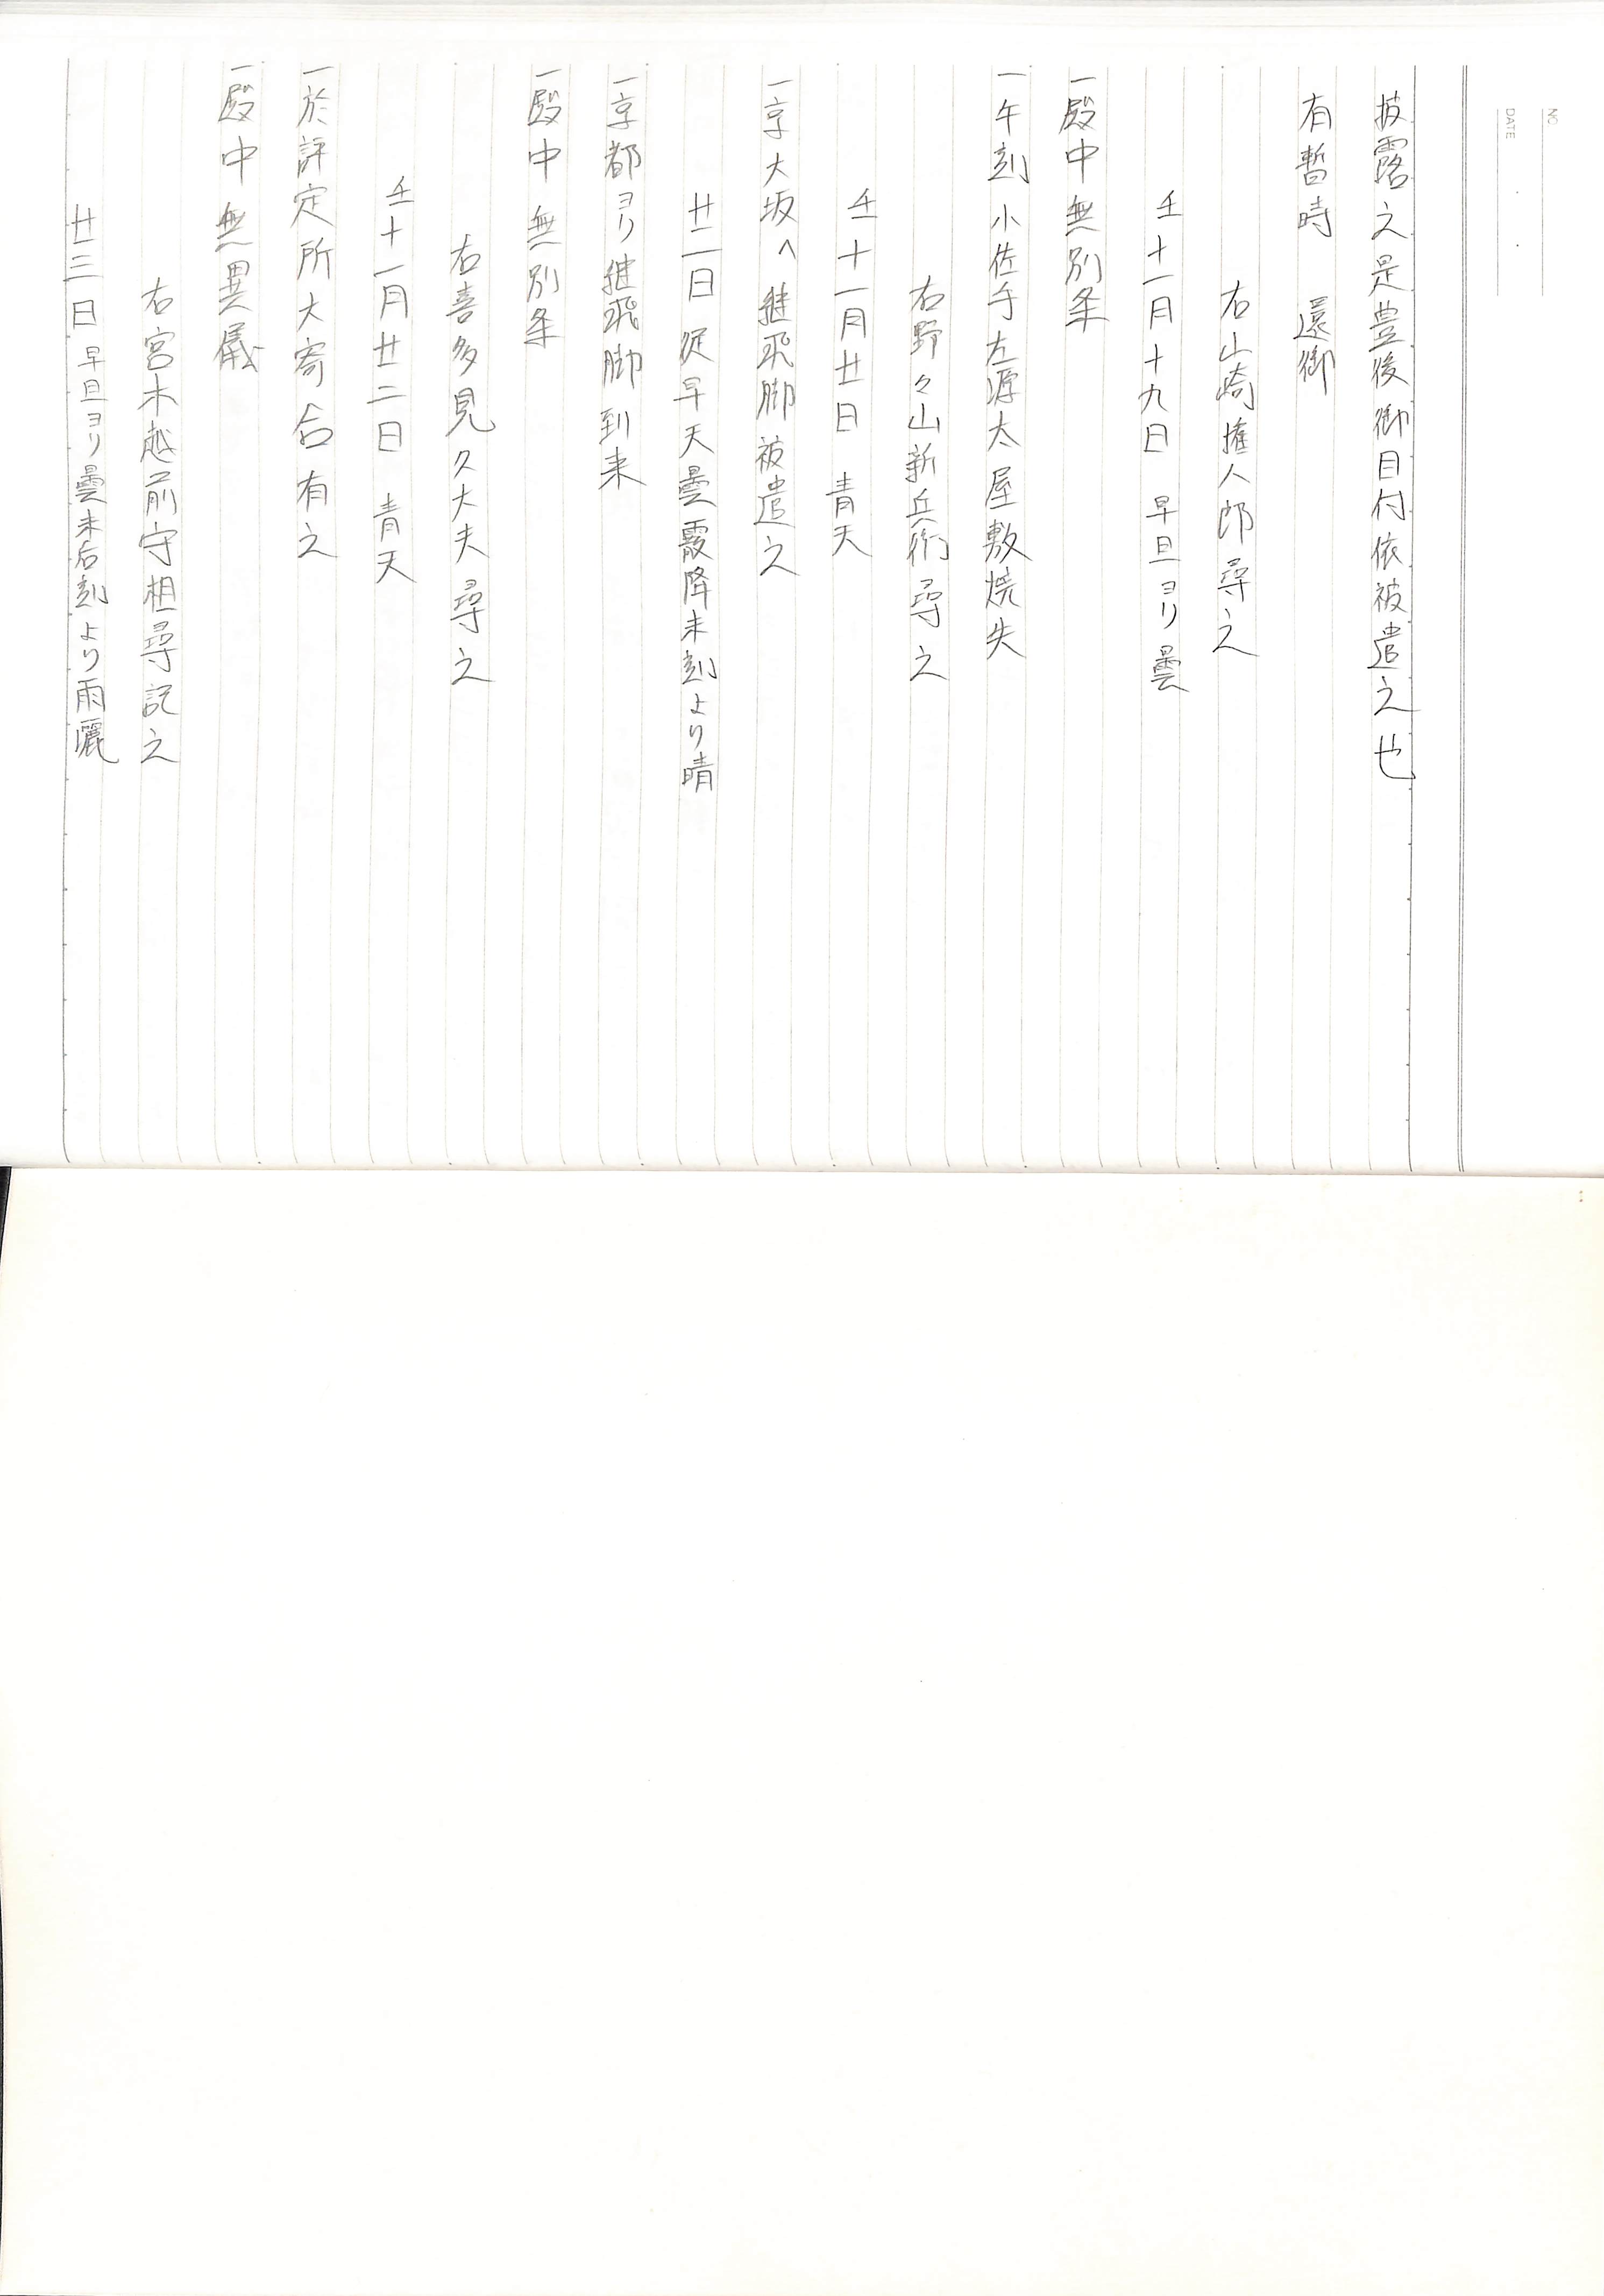 NO
DATE
披露之是豊後御目付依被遣之也
有暫時　還御
右山崎権八郎尋之
壬十一月十九日　早旦ヨリ曇
一殿中無別条
一午刻 小佐手左源太屋敷焼失
右野々山新兵衛尋之
壬十一月廿日　青天
一京大坂へ 継飛脚被遣之
廿一日 従早天曇霰降未刻より晴
一京都ヨリ継飛脚到来
一殿中無別条
右喜多見久大夫尋之
壬十一月廿二日　青天
一於評定所大寄合有之
一殿中無異儀
右宮木越前守相尋記之
廿三日 早旦ヨリ曇未后刻より雨灑